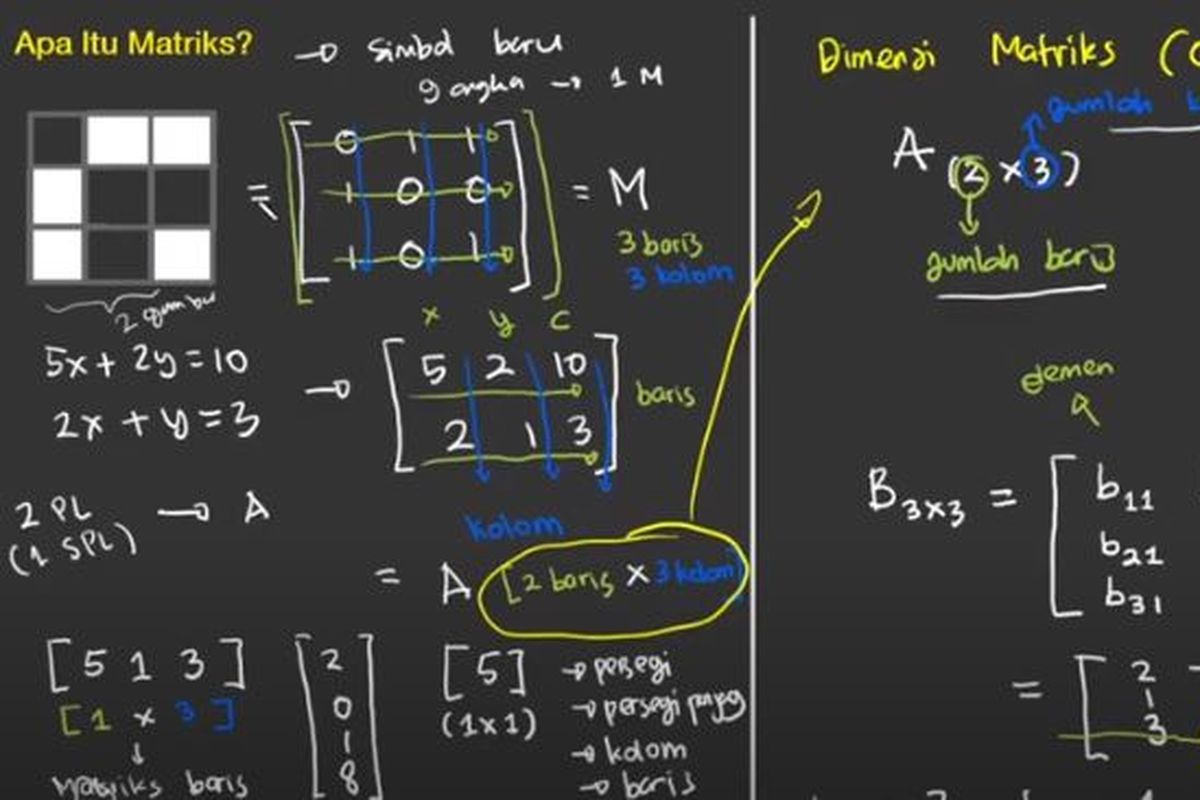 Apa Itu Matriks?
→ Simbol baru
9 angka → 1 M
= [ 0 1 1
1 0 0
1 0 1 ] = M
3 baris
3 kolom
5x + 2y = 10
2x + y = 3
x y c
→ [ 5 2 10
2 1 3 ] baris
kolom
2 PL → A
(1 SPL)
= A [2 baris x 3 kolom]
[ 5 1 3 ]
[ 1 x 3 ]
Matriks baris
[ 2
0
1
8 ]
[ 5 ]
(1x1)
→ persegi
→ persegi
→ kolom
→ baris
Dimensi Matriks (
jumlah
A (2 x 3)
jumlah baris
elemen
B 3x3 = [ b11
b21
b31
= [ 2
1
3